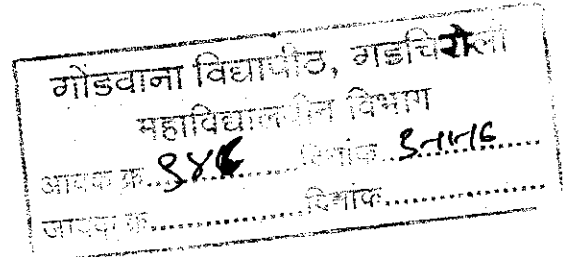 गोंडवाना विद्यापीठ, गडचिरोली
महाविद्यालयीन विभाग
आवक क्र. दिनांक
जावक क्र. दिनांक